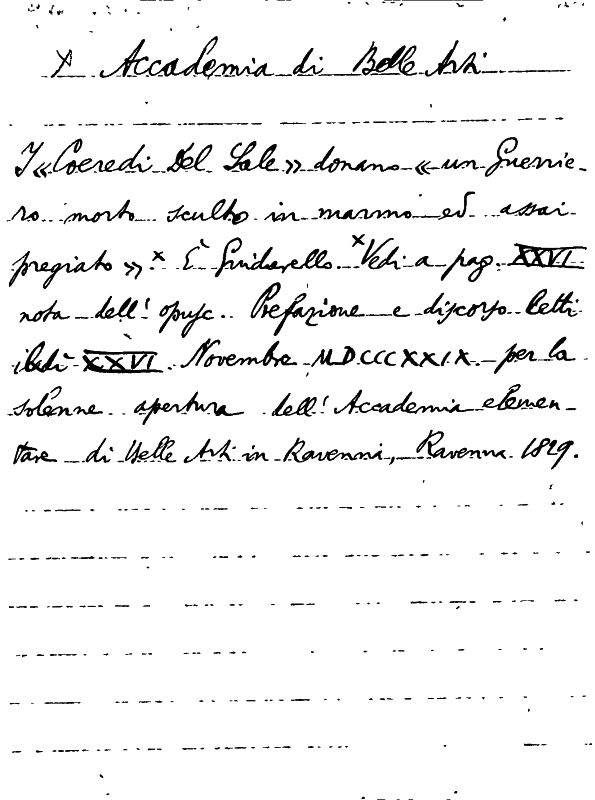 X Accademia di Belle Arti
I «Coeredi Del Sale» donano «un Guerrie-
ro morto sculto in marmo ed assai
pregiato».x È Guidarello. xVedi a pag. XXVI
nota dell' opusc. Prefazione e discorso letti
il dì XXVI Novembre MDCCCXXIX per la
solenne apertura dell' Accademia elemen-
tare di Belle Arti in Ravenna, Ravenna 1829.